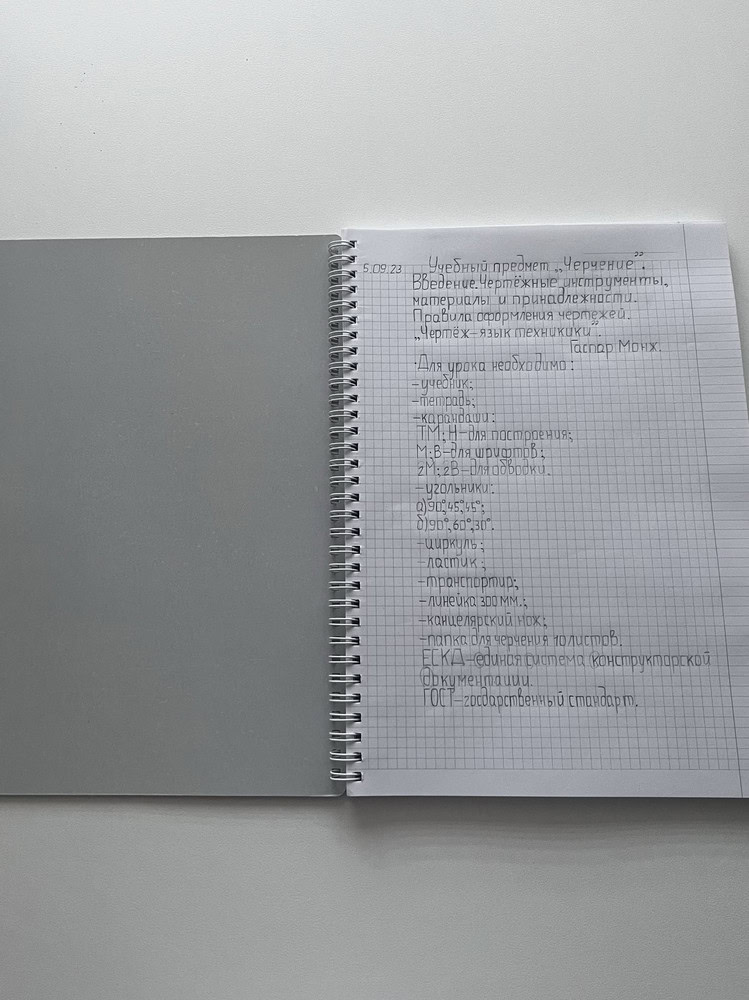 5.09.23 Учебный предмет „Черчение”.
Введение. Чертёжные инструменты,
материалы и принадлежности.
Правила оформления чертежей.
„Чертёж-язык техникики”.
Гаспар Монж.
·Для урока необходимо:
-учебник;
-тетрадь;
-карандаши:
ТМ;Н-для построения;
М;В-для шрифтов;
2М;2В-для обводки.
-угольники:
а)90°,45°,45°;
б)90°,60°,30°.
-циркуль;
-ластик;
-транспортир;
-линейка 300мм.;
-канцелярский нож;
-папка для черчения 10листов.
ЕСКД-единая система конструкторской
документации.
ГОСТ-госдарственный стандарт.